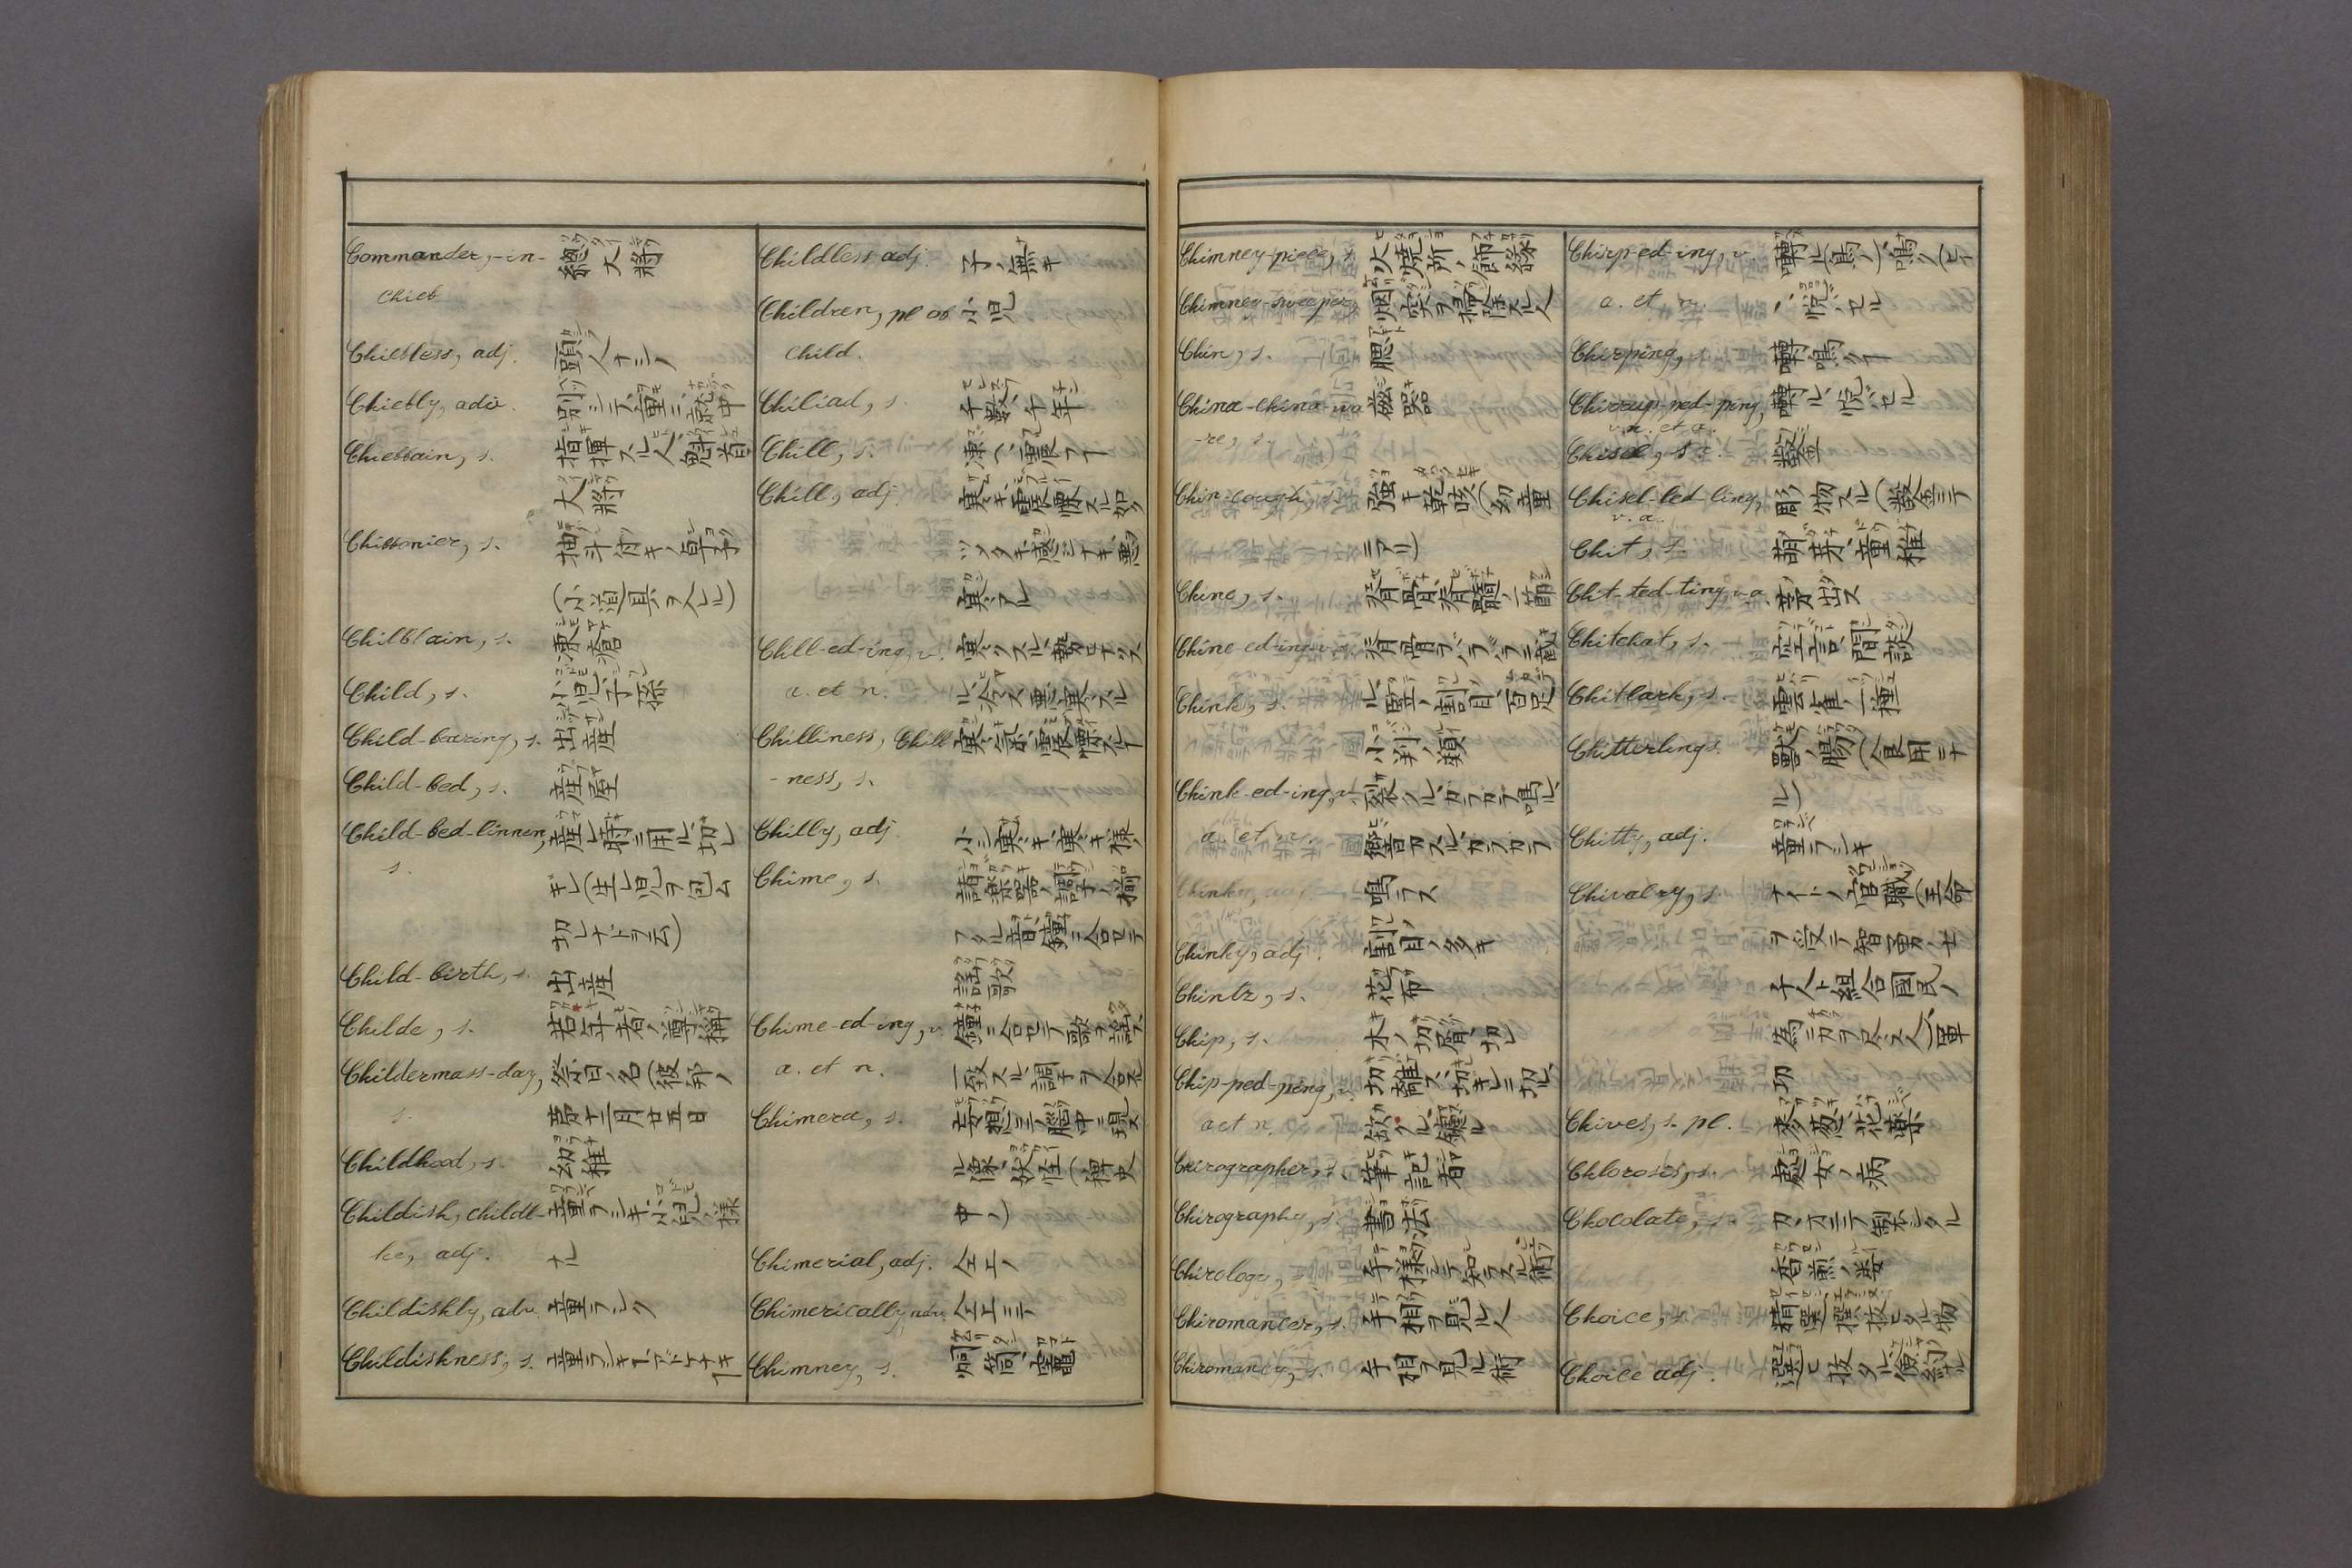 Commander,-in- 總大將
chief
Chiefless, adj. 頭人ナシノ
Chiefly, adv. 別シテ、重ニ、就中
Chieftain, s. 指揮スル人、魁首
大將
Chiffonier, s. 抽斗付キノ卓子
(小道具ヲ入ルヽ)
Chilblain, s. 凍瘡
Child, s. 小児、子孫
Child-bearing, s. 出産
Child-bed, s. 産屋
Child-bed-linnen, 産ノ時ニ用ル切レ
s. (生レ児ヲ包ム
切レナドヲ云)
Child-birth, s. 出産
Childe, s. 若年者ノ尊稱
Childermass-day, 祭日ノ名(彼邦ノ
s. 十二月廿五日
Childhood, s. 幼稚
Childish, childli- 童ラシキ、小児ノ様
ke, adj. ナル
Childishly, adv. 童ラシク
Childishness, s. 童ラシキヿ、アドケナキ
ヿ
Childless adj. 子ノ無キ
Children, pl of 小児
child.
Chiliad, s. 千數、千年
Chill, s. 凍ヘ、震フヿ
Chill, adj. 寒キ、震慄スル、
感ジナキ、
Chill-ed-ing, v. 寒クスル、
a. et n.
Chilliness, Chill 寒気、震慄スルヿ
-ness, s.
Chilly, adj. 小シ寒キ、寒キ様ノ
Chime, s. 諸楽器ノ調子ノ揃
フタル音、鐘ニ合セテ
謡歌
Chime-ed-ing, v. 鐘ニ合セテ歌ヲ謡フ
a. et n. 一致スル、調子ヲ合ス
Chimera, s. 妄想ニテ脳中ニ現ス
ル像、妖怪(稗史
中ノ)
Chimerial, adj. 仝上ノ
Chimerically, adv. 仝上ニテ
Chimney, s. 烟筒、竈
Chimney-piece, s. 火焼所ノ飾縁
Chimney-sweeper, 烟突ヲ掃除スル人
Chin, s. 腮
China-china-wa 磁器
-re, s.
Chin-cough, s. 強キ乾咳(幼童
ニアル)
Chine, s. 脊骨、脊髓ノ一節
Chine-ed-ing-v. 脊骨ヲバラバラニ截
Chink, s. ル、壁ノ割目、
小判ノ類
Chink-ed-ing, v. 裂クル、カラカラ鳴ル
a. et n. 響カスル、カラカラ
鳴ラス
Chinky, adj. 割目ノ多キ
Chintz, s. 花布
Chip, s. 木ノ切屑、切レ
Chip-ped-ping, v. 切離ス、切レキレニ切ル、
a et n. 缺クル、
Chirographer, s. 筆記者
Chirography, s. 書法
Chirology, 手様ニテ知ラスル術
Chiromancer, s. 手相ヲ見ル人
Chiromancy, s. 手相ヲ見ル術
Chirp-ed-ing, v. 囀ル(鳥ノ)鳴ク(仝
a. et n. 悦バセル
Chirping, s. 囀鳴クヿ
Chirrup-ped-ping, 囀ル、悦バセル
v.n. et a.
Chisel, s. 鏨
Chisel-led-ling, 彫物スル(鏨ニテ
v. a.
Chit, s. 萌芽、童稚
Chit-ted-ting, v.a. 芽出ス
Chitchat, s. 空言、閑談
Chitlark, s. 雲雀ノ一種
Chitterlings. 獸ノ腸(食用ニナ
ル)
Chitty, adj. 童ラシキ
Chivalry, s. ナイトノ官職(王命
ヲ受テ智勇ノ士
千人ト組合國民ノ
為ニ力ヲ尽ス人)軍
功
Chives, s. pl. 麥葱、花蘂
Chlorosis, s. 處女ノ病
Chocolate, s. カカヲニテ製シタル
香煎ノ
Choice, s. 精選、擇抜シタル物
Choice adj. 選ヒ抜タル、儉約ナル